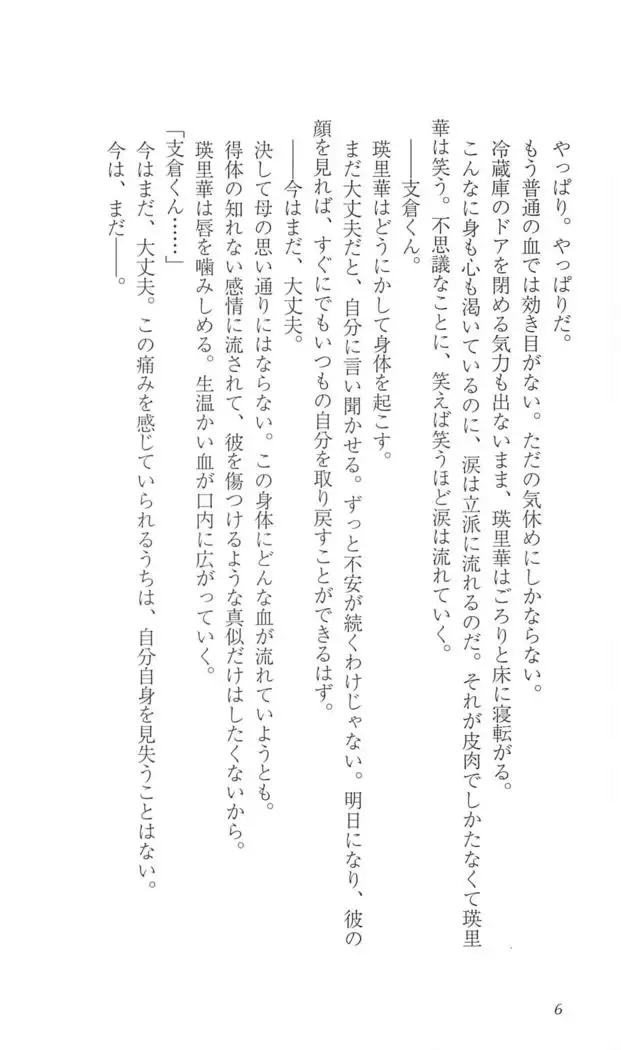 やっぱり。やっぱりだ。
もう普通の血では効き目がない。ただの気休めにしかならない。
冷蔵庫のドアを閉める気力も出ないまま、瑛里華はごろりと床に寝転がる。
こんなに身も心も渇いているのに、涙は立派に流れるのだ。それが皮肉でしかたなくて瑛里
華は笑う。不思議なことに、笑えば笑うほど涙は流れていく。
――支倉くん。
瑛里華はどうにかして身体を起こす。
まだ大丈夫だと、自分に言い聞かせる。ずっと不安が続くわけじゃない。明日になり、彼の
顔を見れば、すぐにでもいつもの自分を取り戻すことができるはず。
――今はまだ、大丈夫。
決して母の思い通りにはならない。この身体にどんな血が流れていようとも。
得体の知れない感情に流されて、彼を傷つけるような真似だけはしたくないから。
瑛里華は唇を噛みしめる。生温かい血が口内に広がっていく。
「支倉くん……」
今はまだ、大丈夫。この痛みを感じていられるうちは、自分自身を見失うことはない。
今は、まだ――。
6